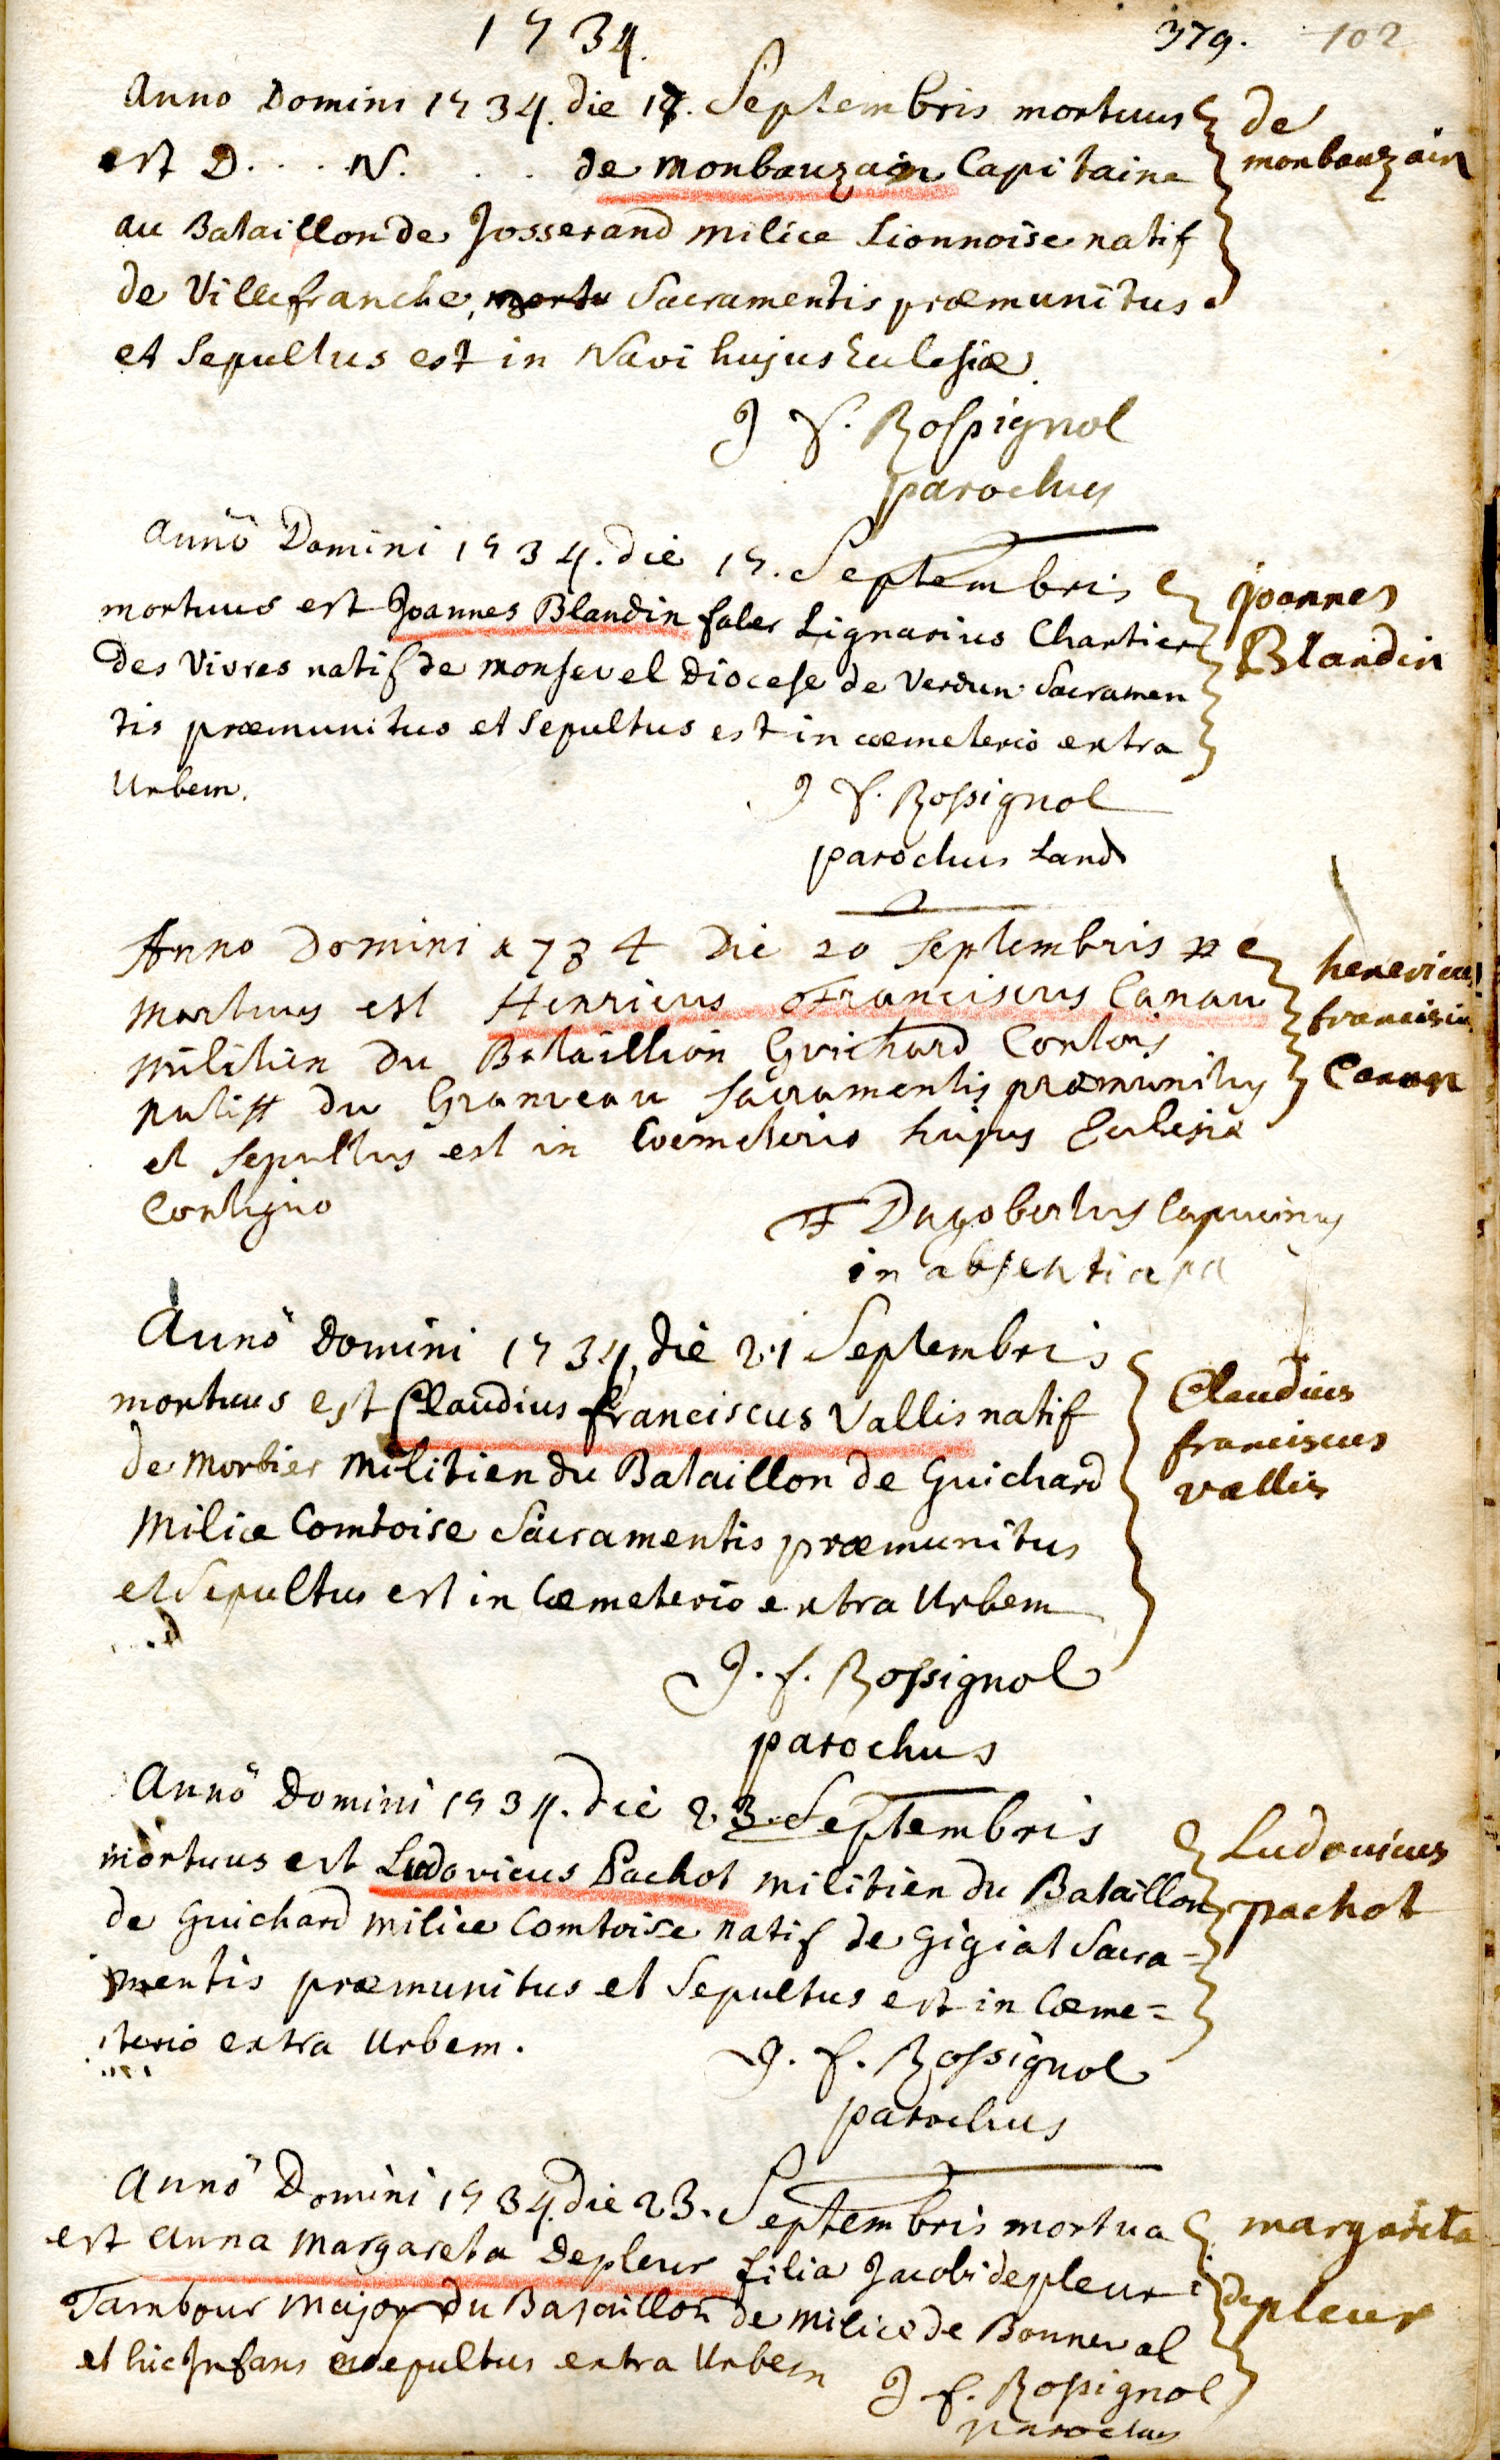 1734.
379. 102
Anno Domini 1734. die 17. Septembris mortuus
est D. . . N. . . . de monbauzain Capitaine
au Bataillon de Josserand milice Lionnoise natif
de Villefranche, mortu Sacramentis præmunitus
et Sepultus est in Navi hujus Eulesiæ.
de
monbauzain
J f. Rossignol
parochus
Anno Domini 1734. die 17. Septembris
mortuus est Joannes Blandin faber Lignarius Chartier
des Vivres natif de monsevel Diocese de Verdun Sacramen
tis præmunitus et Sepultus est in cœmeterio extra
Urbem.
joannes
Blandin
J f. Rossignol
parochus Land
Anno Domini 1734 Die 20 Septembris
Mortuus est Henricus Franciscus Canau
militien du Bataillion Guichard Contois
natiff du Granveau Sacramentis præmunitus
et Sepultus est in Coemeterio hujus Eulesiæ
Contiguo
franciscus
Canau
F Dagobertus Capucinus
in absentia pa
Anno Domini 1734, die 21 Septembris
mortuus est Claudius franciscus Vallis natif
de Morbier Militien du Bataillon de Guichard
Milice Comtoise Sacramentis præmunitus
et Sepultus est in Cœmeterio extra Urbem
Claudius
franciscus
vallis
J. f. Rossignol
parochus
Anno Domini 1734. die 23. Septembris
mortuus est Ludovicus Pachot militien du Bataillon
de Guichard milice Comtoise natif de Gigiat Sacra=
mentis præmunitus et Sepultus est in Cœme=
terio extra Urbem.
Ludovicus
pachot
J. f. Rossignol
parochus
Anno Domini 1734. die 23. Septembris mortua
est Anna Margareta Depleur filia Jacobi depleur
Tambour Major du Bataillon de milice de Bonneval
et hic Infans sepultus extra Urbem
margareta
depleur
J f. Rossignol
parochus